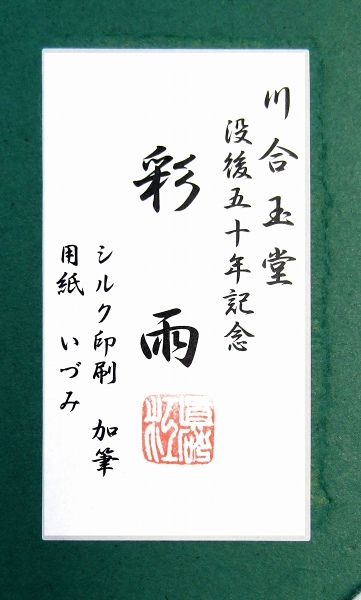 川合玉堂
没後五十年記念
彩雨
シルク印刷 加筆
用紙 いづみ